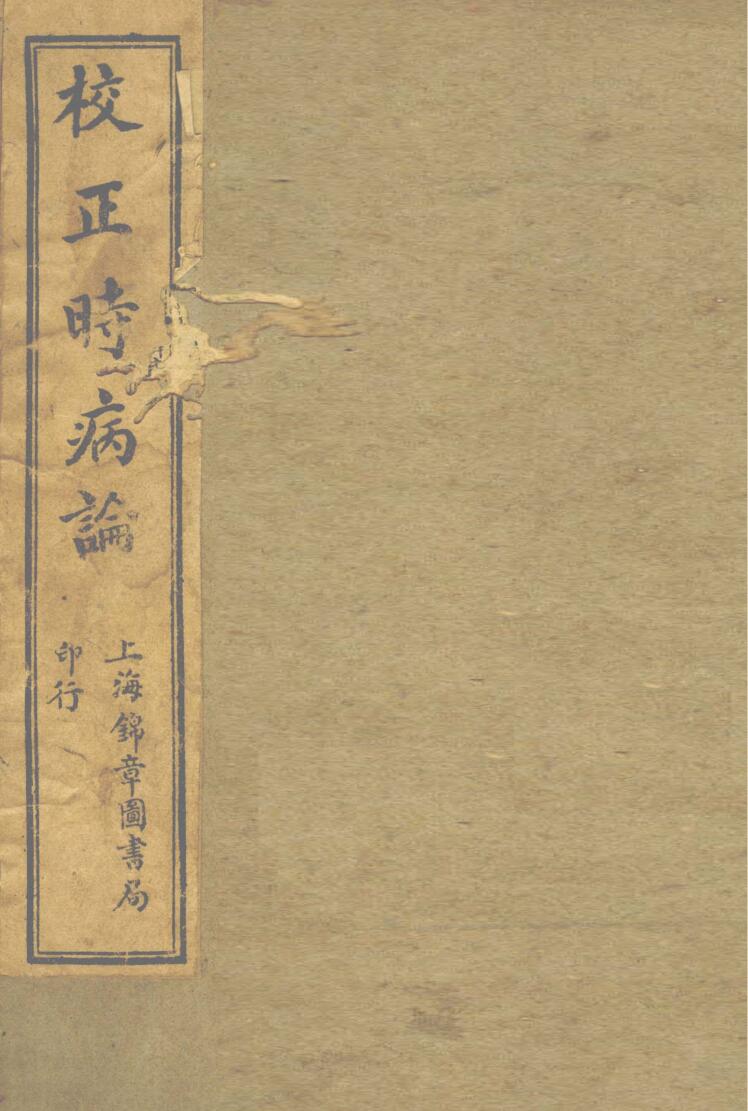 校正時病論
上海錦章圖書局
印行